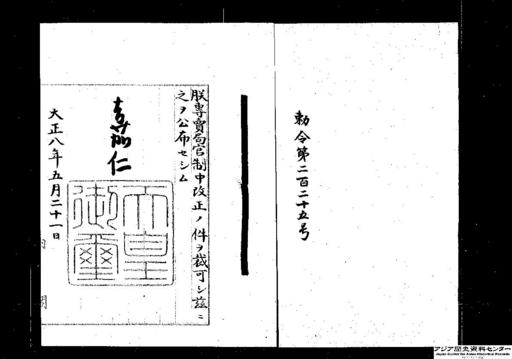 勅令第二百二十五号
朕専賣局官制中改正ノ件ヲ裁可シ茲ニ
之ヲ公布セシム
嘉仁
天皇
御璽
大正八年五月二十一日
内閣
アジア歴史資料センター
Japan Center for Asian Historical Records